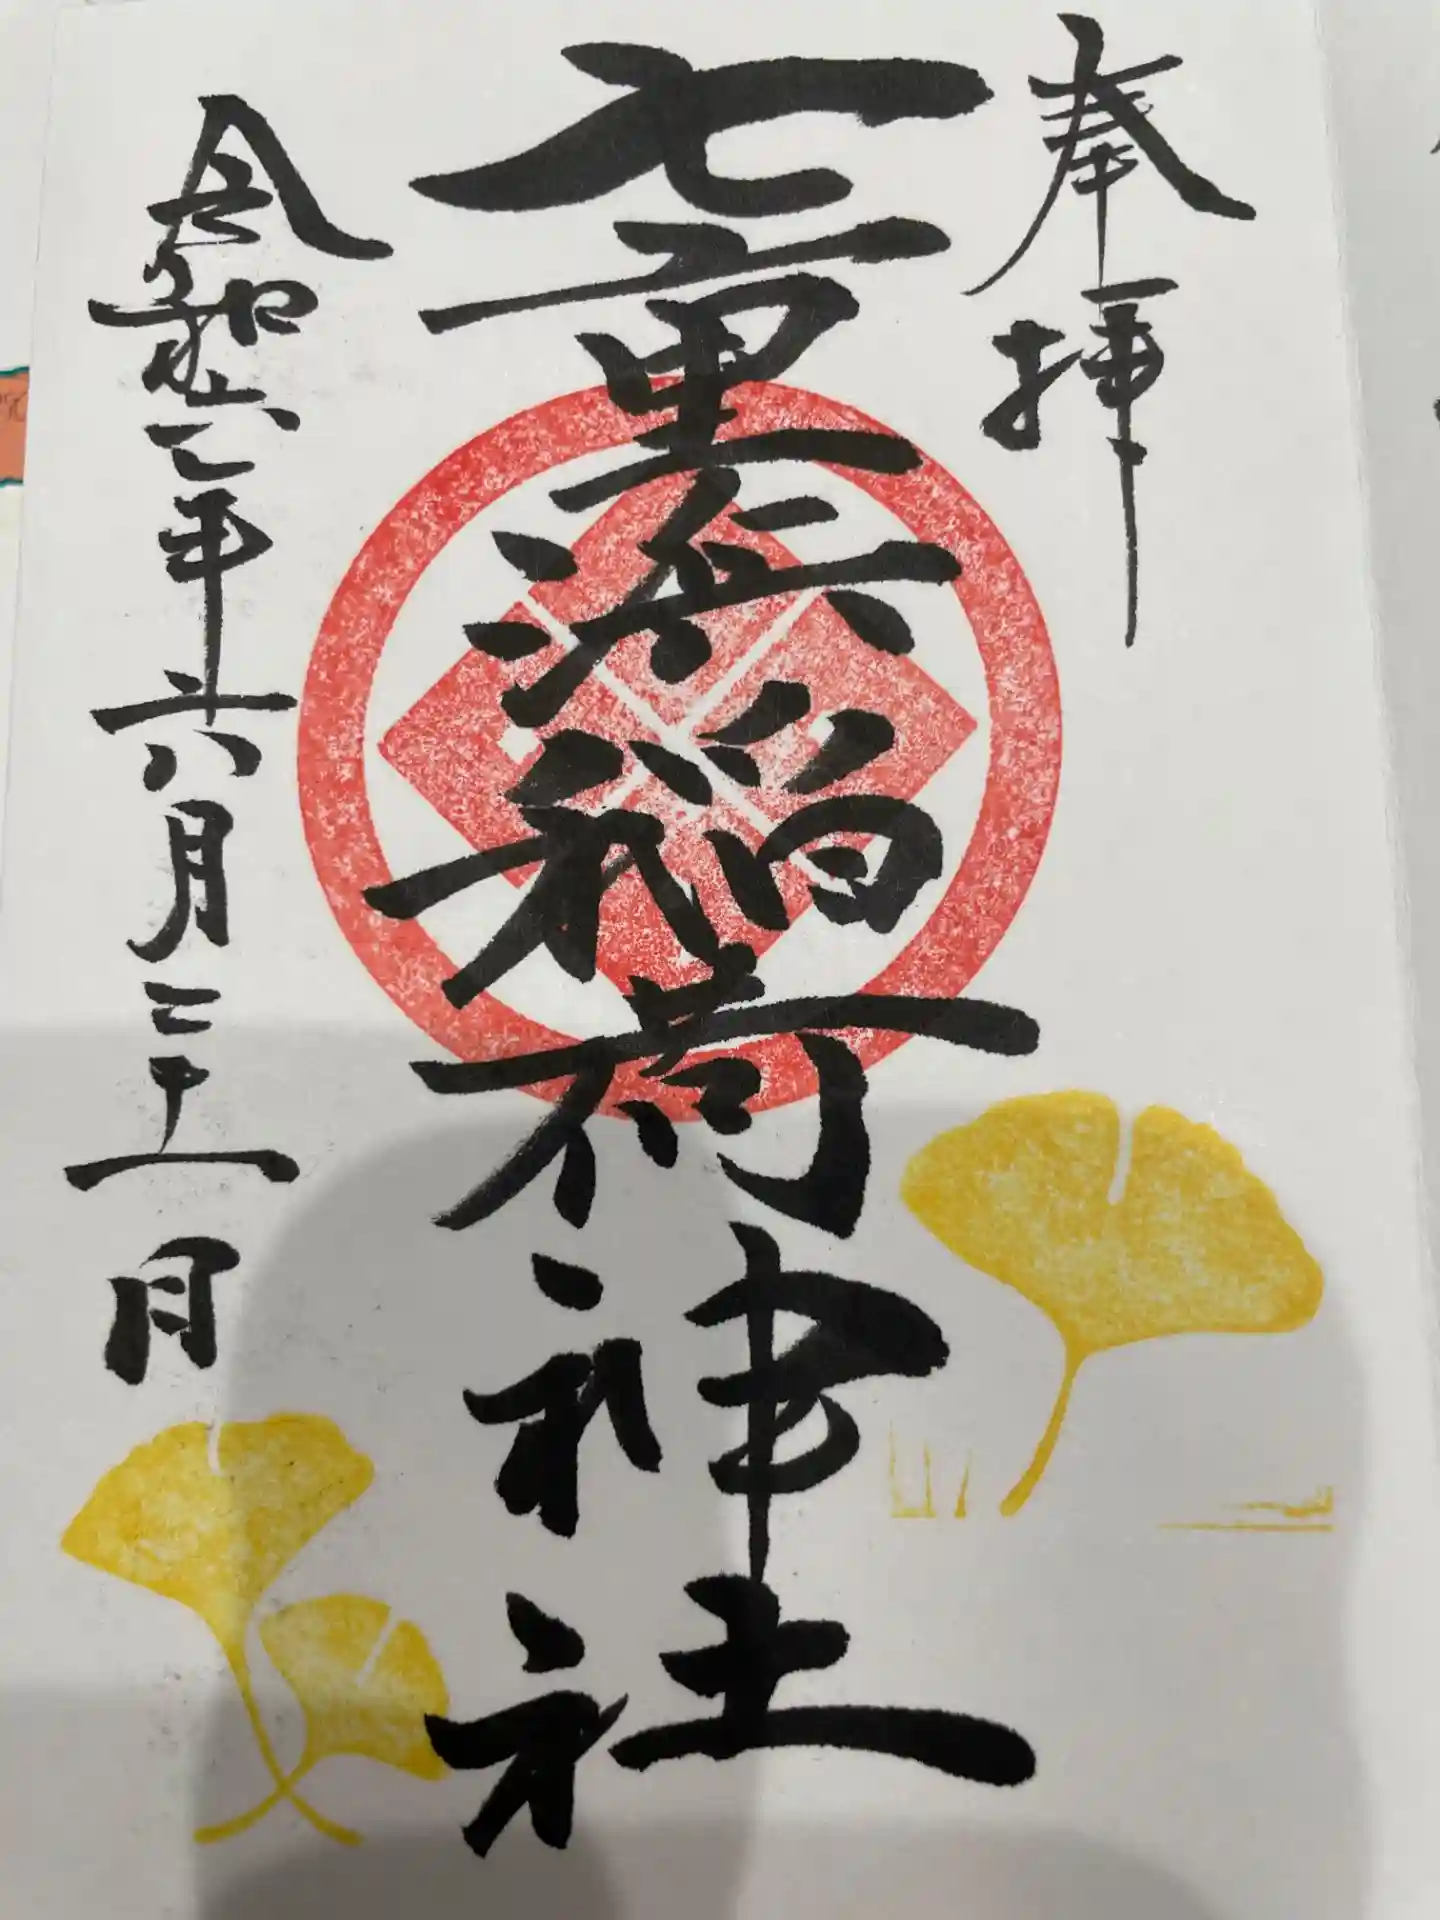 奉拝
七重浜稲荷神社
令和年六月二十一日